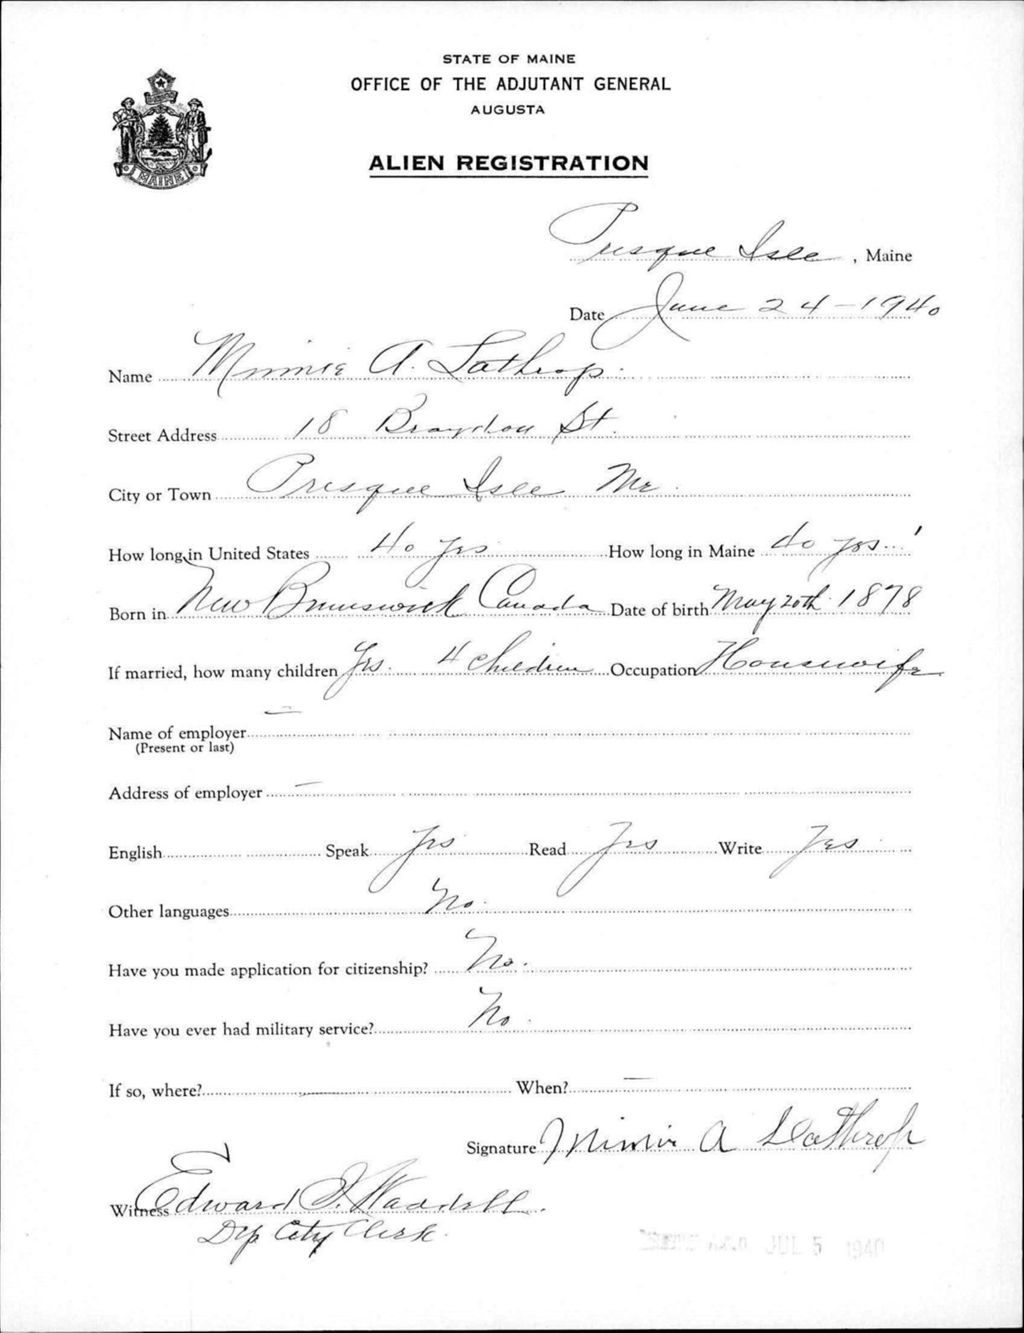 STATE OF MAINE
OFFICE OF THE ADJUTANT GENERAL
AUGUSTA
MAINE
ALIEN REGISTRATION
Presque Isle, Maine
Date June 24-1940
Name Minnie A. Lathrop.
Street Address 18 St.
City or Town Presque Isle Me.
How long in United States 40 yrs How long in Maine 40 yrs.
Born in New Brunswick Canada Date of birth May 20th 1878
If married, how many children Yes. 4 children Occupation Housewife
Name of employer —
(Present or last)
Address of employer —
English Speak Yes Read Yes Write Yes
Other languages No.
Have you made application for citizenship? No.
Have you ever had military service? No
If so, where? — When? —
Signature Minnie A Lathrop
Witness Edward Waddell.
Dep City Clerk.
A.G.O JUL 5 1940